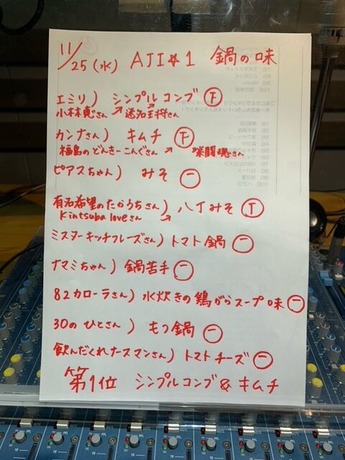 11/25(水) AJI#1 鍋の味
エミリ) シンプルコンブ 下
小林克じさん 送りの王将さん
カンナさん) キムチ 下
福島のどんきーこんぐさん 喋闘魂さん
ピアスちゃん) みそ 一
有名希望のたからちさん) 八丁みそ 下
Kintsuba loveさん
ミスターキッチフレーズさん) トマト鍋 一
ナミちゃん) 鍋苦手 一
82カローラさん) 水炊きの鶏がらスープ味 一
30のひとさん) もつ鍋 一
飲んだくれナースマンさん) トマトチーズ 一
第1位 シンプルコンブ & キムチ